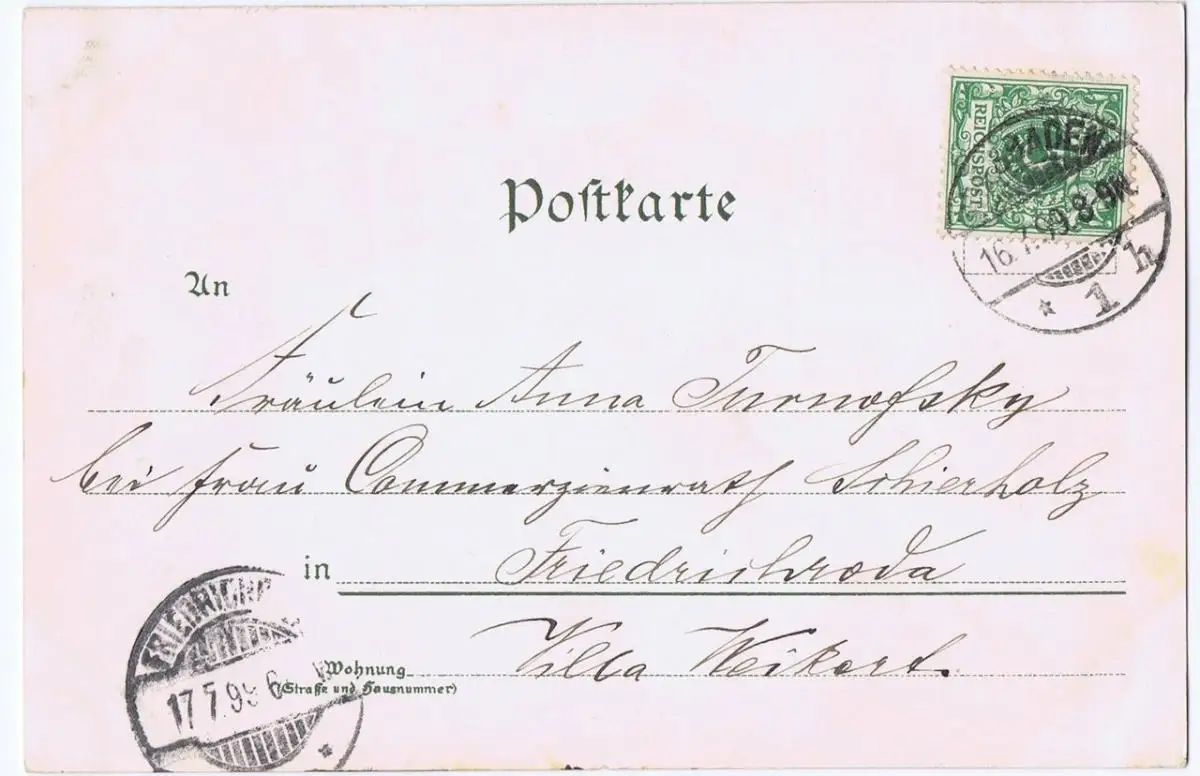 Postkarte
REICHSPOST
16.7.99.8-9N.
* 1 h
An
Fräulein Anna Turnofsky
bei Frau Commerzienrath Schierholz
in Friedrichroda
Villa Weikert.
Wohnung
(Straße und Hausnummer)
17.7.99